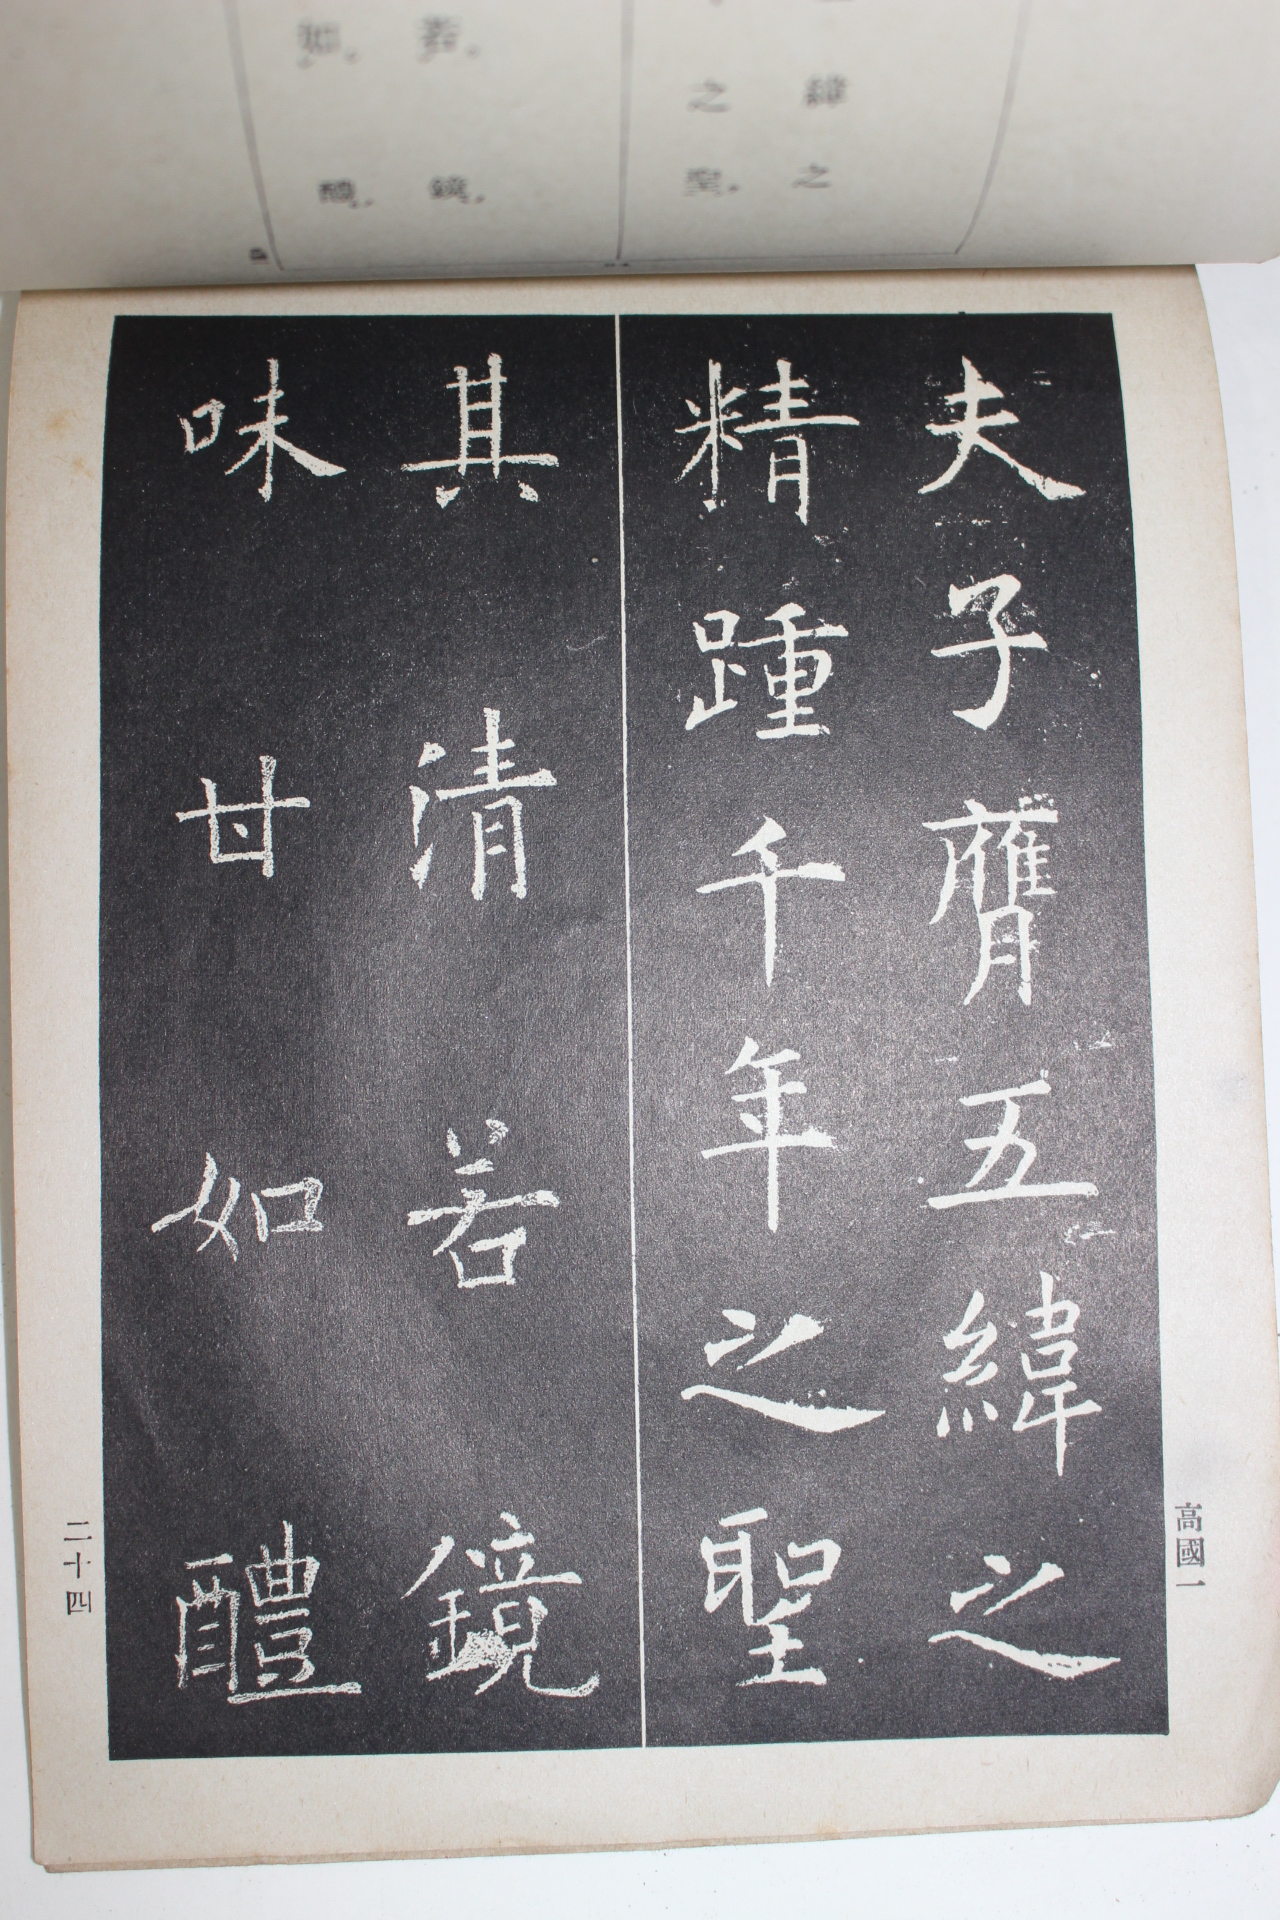 夫子膺五緯之
精踵千年之聖
其清若鏡
味甘如醴
高國一
二十四
緯之
之聖，
若，鏡，
如，醴，